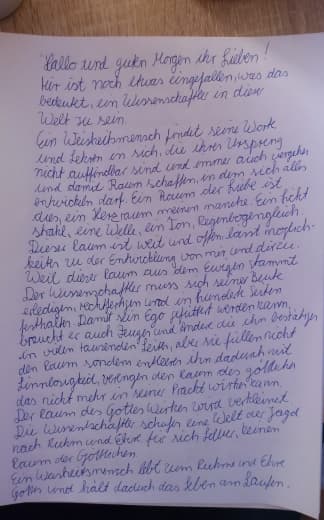 Hallo und guten Morgen ihr Lieben!
Mir ist noch etwas eingefallen, was das
bedeutet, ein Wissenschaftler in dieser
Welt zu sein.
Ein Weisheitsmensch findet seine Worte
und Lehren in sich, die ihren Ursprung
nicht auffindbar sind und immer auch vergehen
und damit Raum schaffen, in dem sich alles
entwickeln darf. Ein Raum der Liebe ist
dies, ein Herzraum meinen manche. Ein Licht
strahl, eine Welle, ein Ton, Regenbogengleich.
Dieser Raum ist weit und offen lässt Möglich-
keiten zu der Entwicklung von mir und dir zu.
Weil dieser Raum aus dem Ewigen stammt.
Der Wissenschaftler muss sich seiner Beute
erledigen, rechtfertigen und in hunderte Seiten
festhalten. Damit sein Ego gefüttert werden kann,
braucht er auch Zeugen und andere die ihn bestätigen
in vielen tausenden Seiten, aber sie füllen nicht
den Raum sondern entleeren ihn dadurch mit
Sinnlosigkeit, verengen den Raum des göttlichen
das nicht mehr in seiner Pracht wirken kann.
Der Raum des Gottes Wirken wird verkleinert
Die Wissenschaftler schufen eine Welt der Jagd
nach Ruhm und Ehre für sich selber, keinen
Raum der Göttlichen.
Ein Weisheitsmensch lebt zum Ruhme und Ehre
Gottes und hält dadurch das Leben am Laufen.